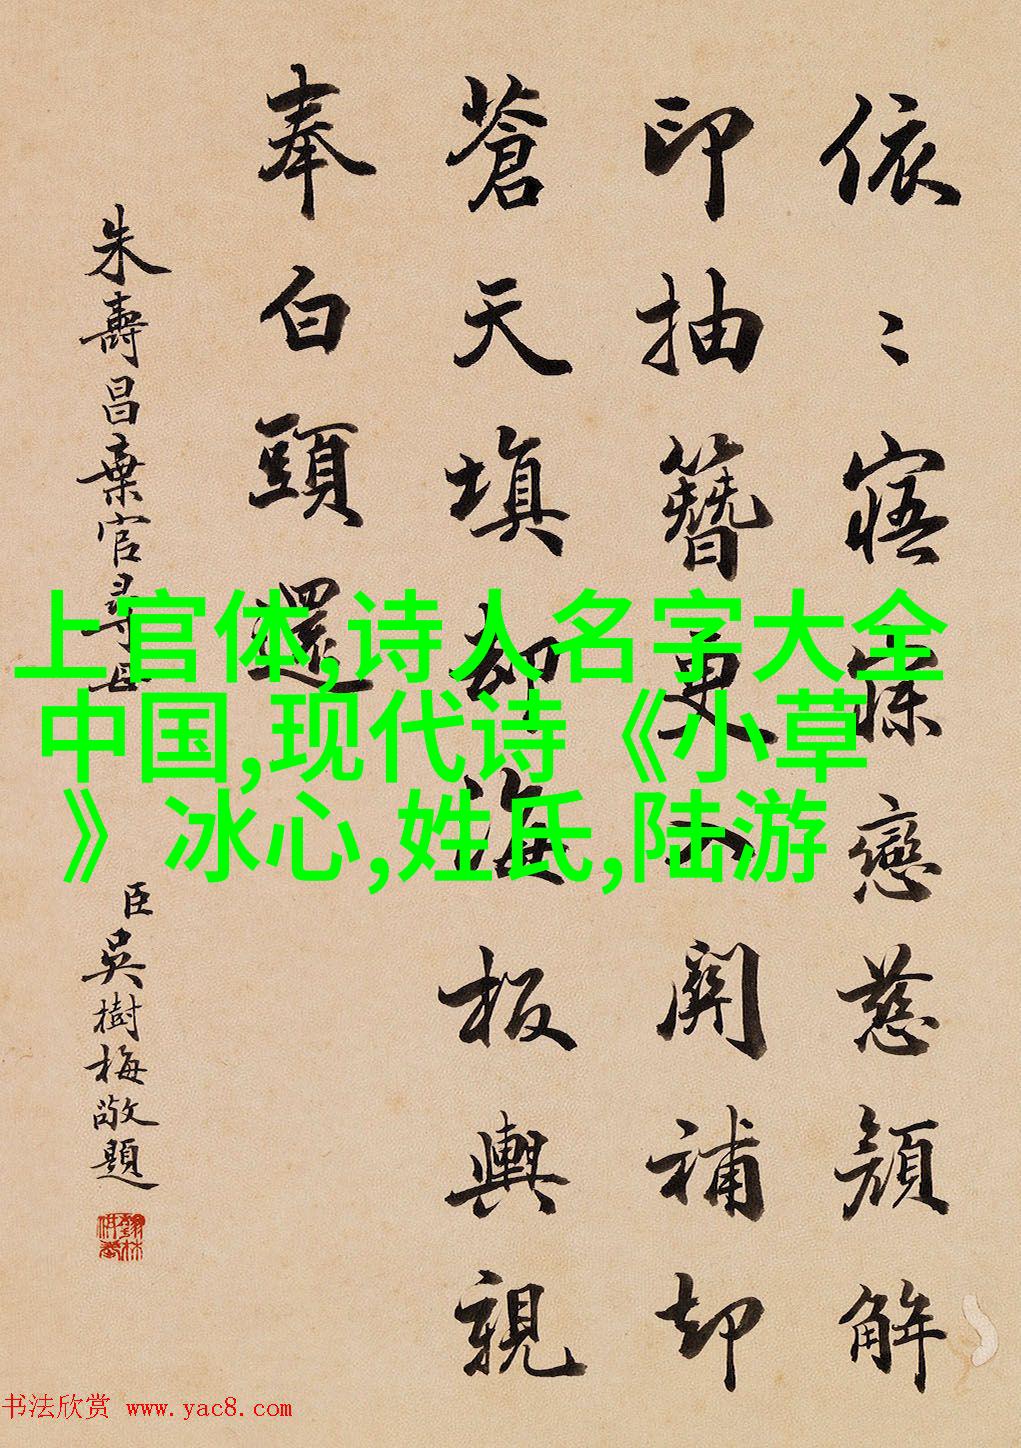 依〻寤寐戀慈顔解
印抽簪更入關補却
蒼天填却海板輿親
奉白頭還
朱壽昌棄官尋母
臣吳樹梅敬題
上官体,诗人名字大全
中国,现代诗《小草
》冰心,姓氏,陆游
书法欣赏 www.yac8.com